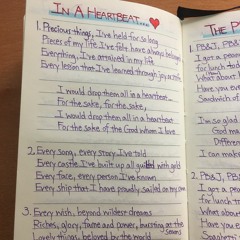 IN A HEARTBEAT...
1. Precious things, I've held for so long
Pieces of my life I've felt have always belonged
Everything, I've attained in my life
Every lesson that I've learned through joy or
I would drop them all in a heartbeat
For the sake, for the sake,
I would drop them all in a heartbeat
For the sake of the God whom I love
2. Every song, every story I've told
Every castle I've built up all guilded with gold
Every face, every person I've known
Every ship that I have proudly sailed on my own
3. Every wish, beyond wildest dreams
Riches, glory, fame and power, bursting at the
(seams)
Lovely things, beloved by the world
THE P
1. PB&J, PB&J
I got a
for lunch
What about
Have you ev
Sandwich of
I'm so glad
God made
Different
I can make
2. PB&J, PB
I got a
for lunch
What about
Have you